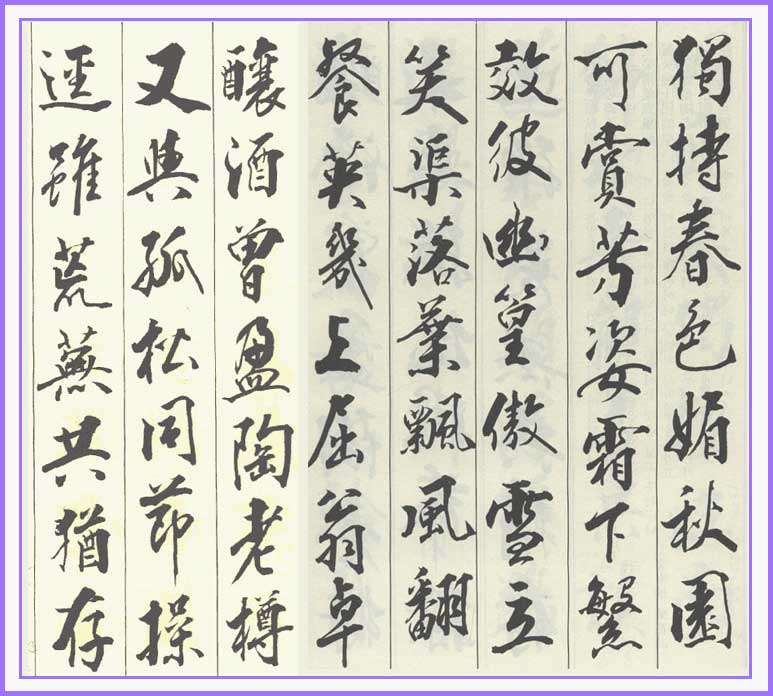 獨持春色媚秋園
可賞芳姿霜下繁
效彼幽篁傲雪立
笑渠落葉飄風翻
餐英幾上屈翁卓
釀酒曾盈陶老樽
又與孤松同節操
逕雖荒蕪共猶存